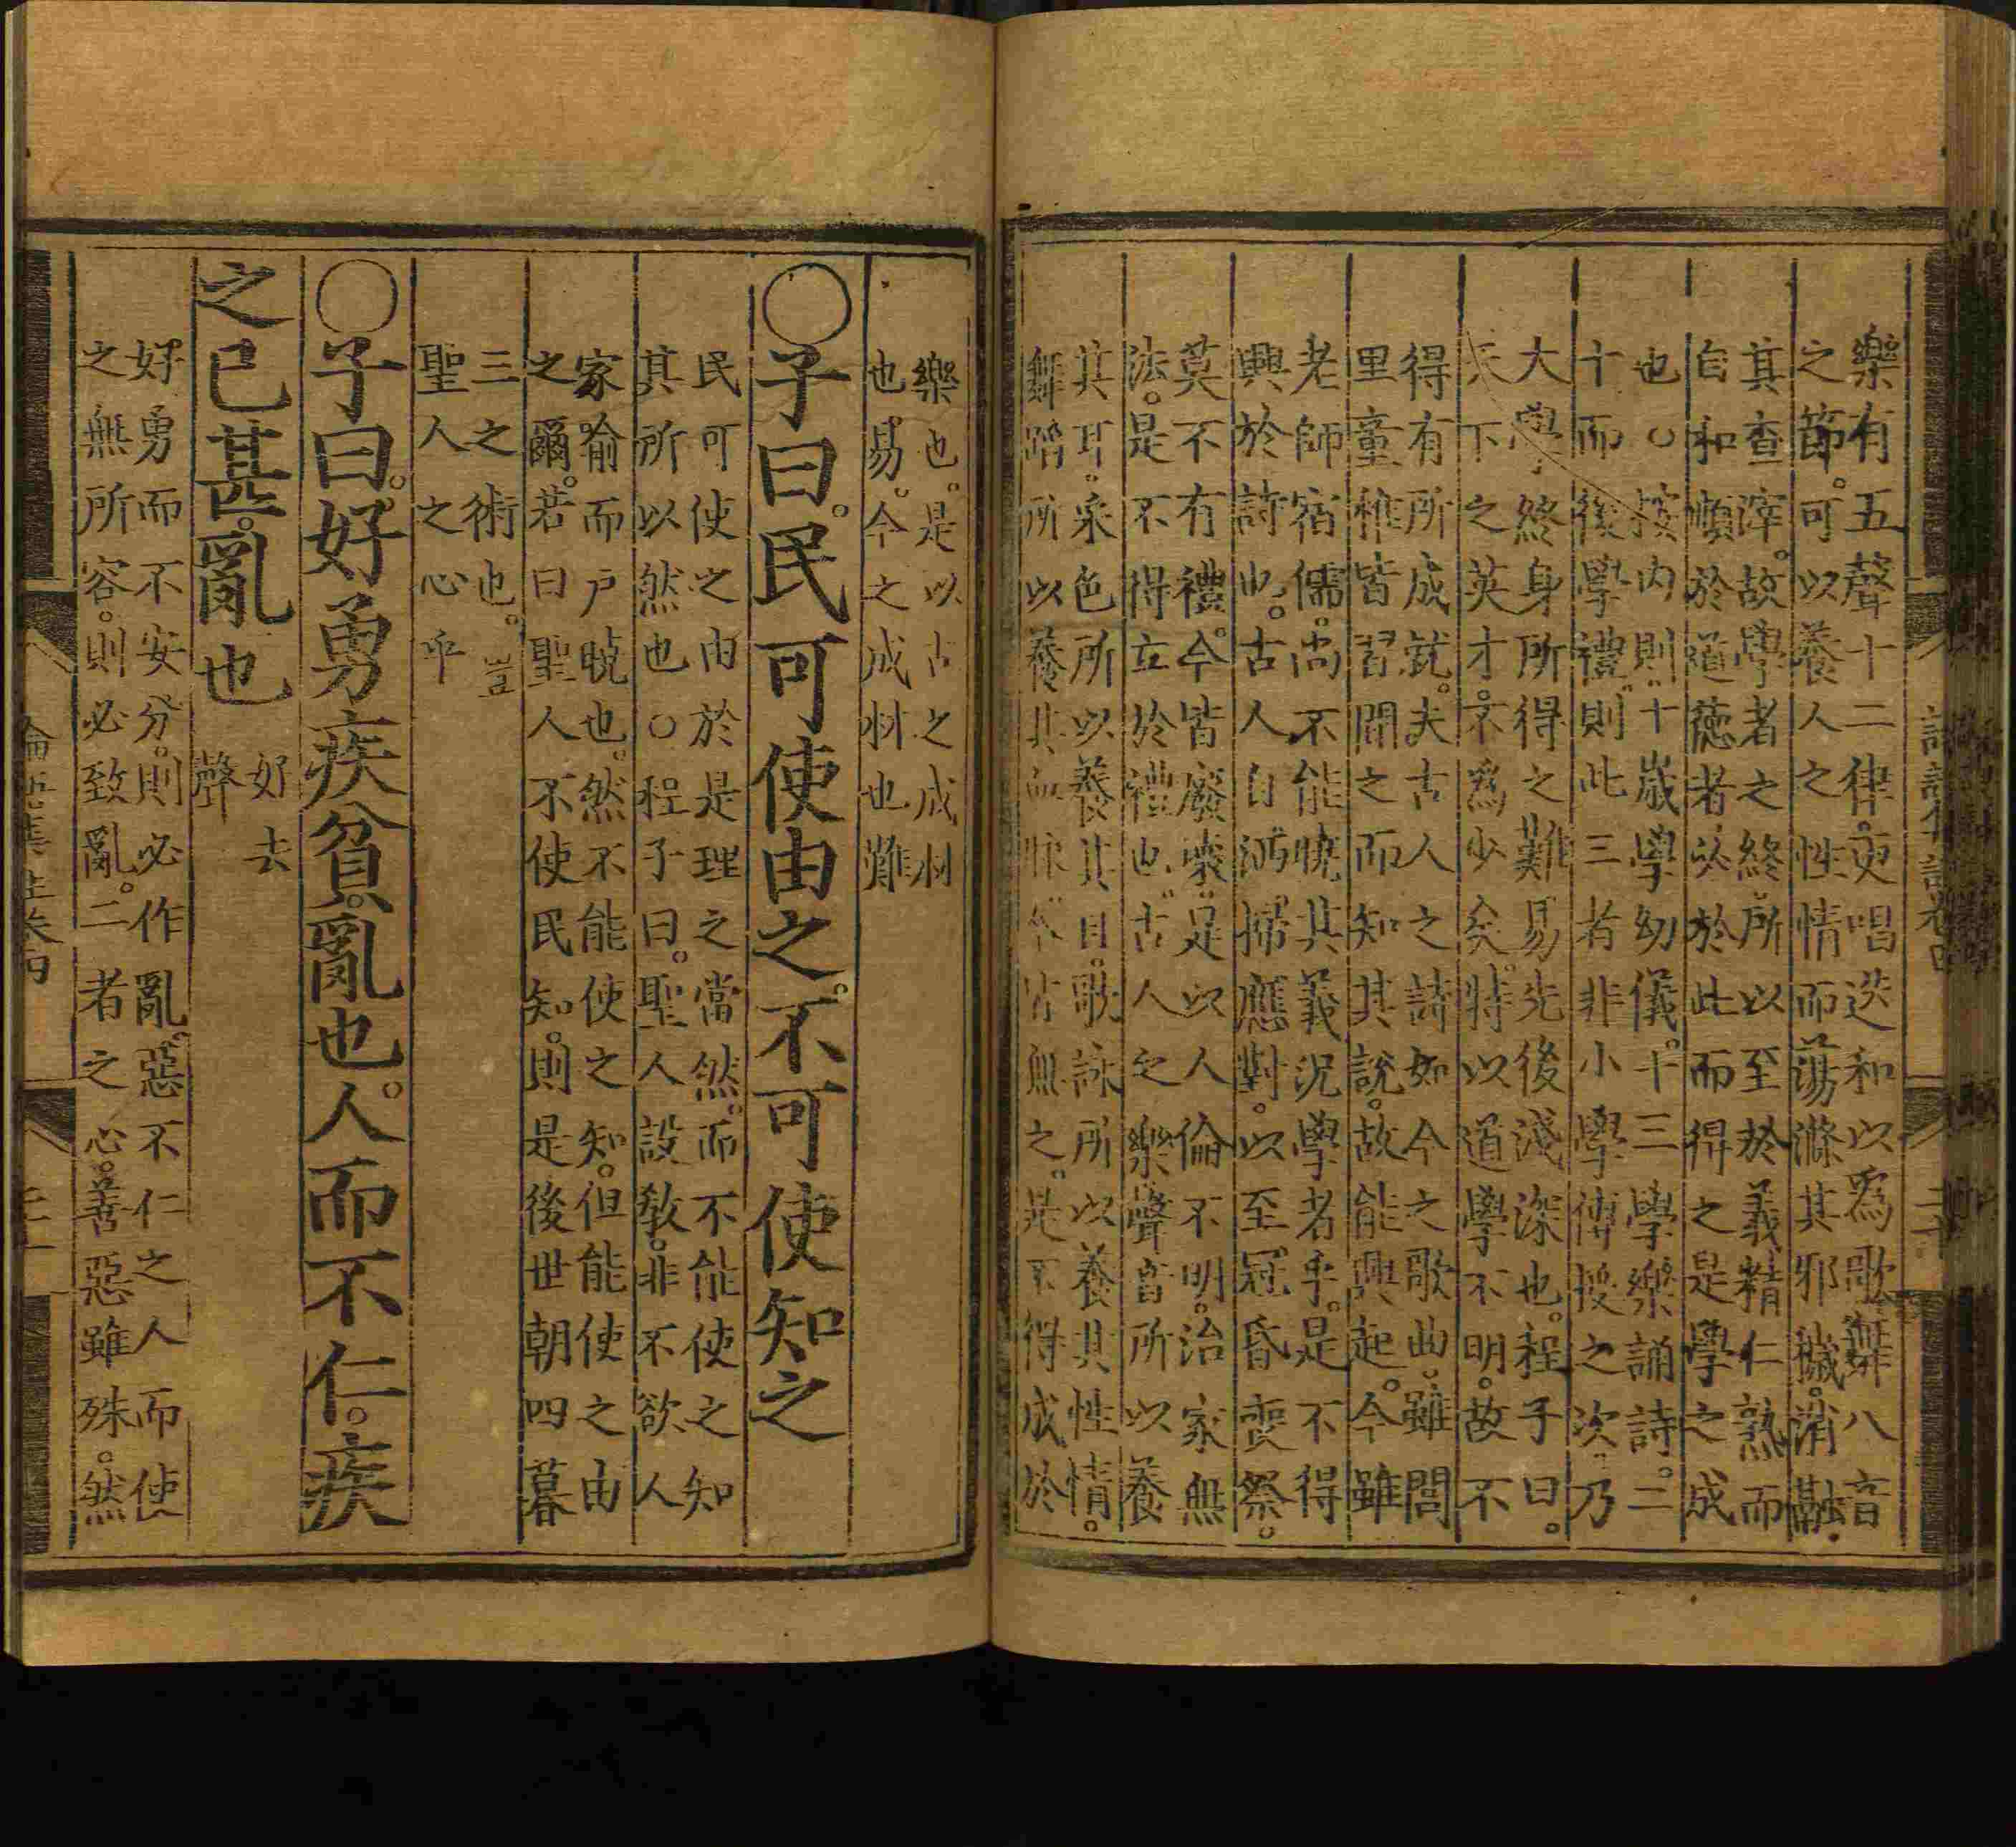 樂有五聲十二律。更唱迭和以爲歌舞八音
之節。可以養人之性情而蕩滌其邪穢。消融
其查滓。故學者之終。所以至於義精仁熟而
自和順於道德者必於此而得之是學之成
也○按內則十歲學幼儀。十三學樂誦詩。二
十而後學禮則此三者非小學傳授之次乃
大學終身所得之難易先後淺深也。程子曰。
天下之英才。不爲少矣。特以道學不明。故不
得有所成就。夫古人之詩如今之歌曲。雖閭
里童稚皆習聞之而知其說。故能興起。今雖
老師宿儒。尚不能曉其義況學者乎。是不得
興於詩也。古人自洒掃應對。以至冠昏喪祭。
莫不有禮。今皆廢壞。是以人倫不明。治家無
法。是不得立於禮也。古人之樂聲音所以養
其耳。采色所以養其目。歌詠所以養其性情。
舞蹈所以養其血脉今皆無之。是不得成於
樂也。是以古之成材
也。易。今之成材也難
○子曰。民可使由之。不可使知之
民可使之由於是理之當然。而不能使之知
其所以然也○程子曰。聖人設教。非不欲人
家喻而戶曉也。然不能使之知。但能使之由
之爾。若曰聖人不使民知。則是後世朝四暮
三之術也。豈
聖人之心乎
○子曰。好勇疾貧。亂也。人而不仁。疾
之已甚。亂也
好去
聲
好勇而不安分。則必作亂。惡不仁之人而使
之無所容。則必致亂。二者之心。善惡雖殊。然